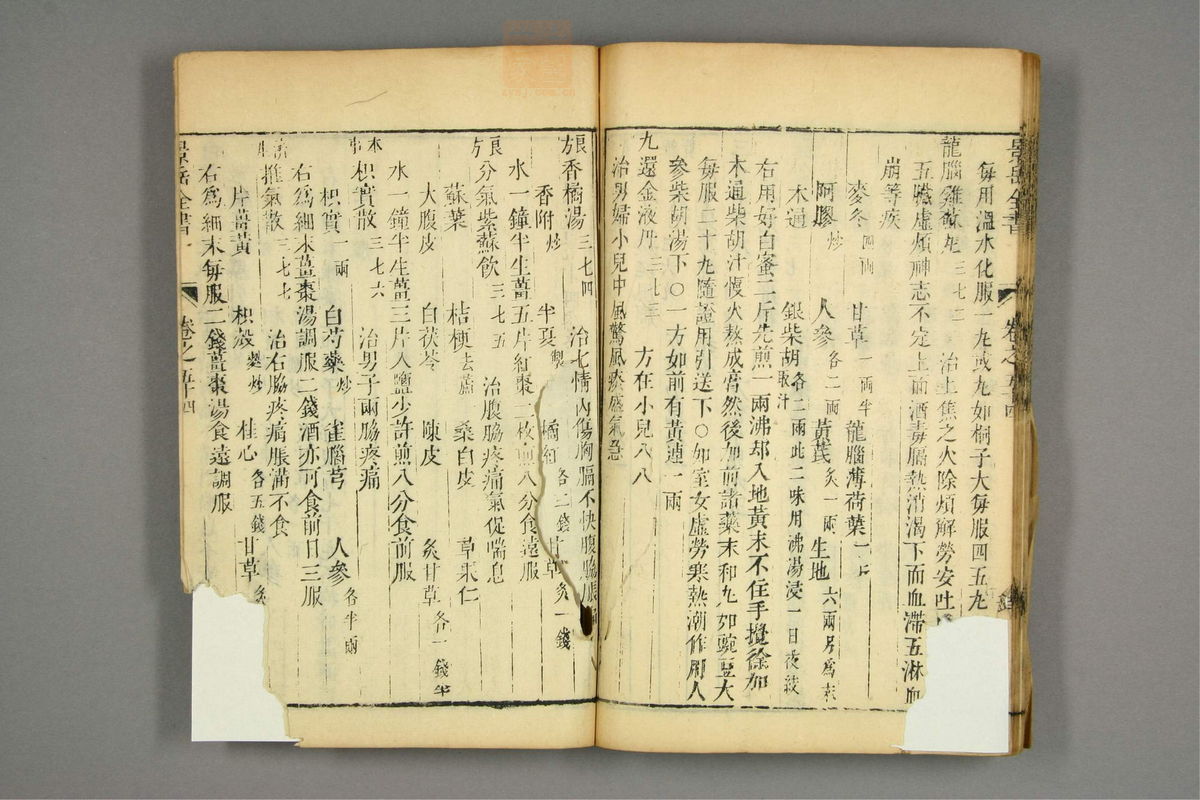 每用溫水化服一九或九如桐子大每服四五九
龍腦雞蘇九 三七二 治上焦之火除煩解勞安吐
五臟虛煩神志不定上而酒毒膈熱消渴下而血滯五淋血
崩等疾
麥冬 四兩 甘草 一兩半 龍腦薄荷葉 一斤
阿膠 炒 人參 各二兩 黃芪 炙一兩 生地 六兩另為末
木通 銀柴胡 各二兩此二味用沸湯浸一日夜絞取汁
右用好白蜜二斤先煎一兩沸却入地黃末不住手攪徐加
木通柴胡汁慢火熬成膏然後加前諸藥末和九如豌豆大
每服二十九隨證用引送下○如室女虛勞寒熱潮作用人
參柴胡湯下○一方如前有黃連一兩
九還金液丹 三七三 方在小兒八八
治男婦小兒中風驚風痰盛氣急
景岳全書 卷之五十四
良方香橘湯 三七四 治七情內傷胸膈不快腹脇脹
香附 炒 半夏 製 橘紅 各二錢 甘草 炙一錢
水一鐘半生薑五片紅棗二枚煎八分食遠服
良方分氣紫蘇飲 三七五 治腹脇疼痛氣促喘息
蘇葉 桔梗 去蘆 桑白皮 草果仁
大腹皮 白茯苓 陳皮 炙甘草 各一錢半
水一鐘半生薑三片入鹽少許煎八分食前服
本事枳實散 三七六 治男子兩脇疼痛
枳實 一兩 白芍藥 炒 雀腦芎 人參 各半兩
右為細末薑棗湯調服二錢酒亦可食前日三服
推氣散 三七七 治右脇疼痛脹滿不食
片薑黃 枳殼 麩炒 桂心 各五錢 甘草 炙
右為細末每服二錢薑棗湯食遠調服
景岳全書 卷之五十四